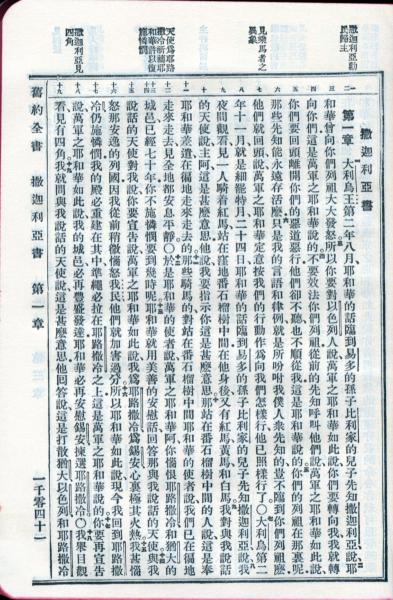 撒迦利亞勸
民歸主
見乘馬者之
異象
天使爲耶路
撒冷祈禱耶
和華許以復
施憐憫
撒迦利亞見
四角
撒迦利亞書
第一章 大利烏王第二年八月耶和華的話臨到易多的孫子比利家的兒子先知撒迦利亞說耶
和華曾向你們列祖大大發怒所以你要對以色列人說萬軍之耶和華如此說你們要轉向我我就轉
向你們這是萬軍之耶和華說的不要效法你們列祖從前的先知呼叫他們說萬軍之耶和華如此說
你們要回頭離開你們的惡道惡行他們卻不聽也不順從我這是耶和華說的你們的列祖在那裏呢
那些先知能永遠存活麼只是我的言語和律例就是所吩咐我僕人衆先知的豈不臨到你們列祖麼
他們就回頭說萬軍之耶和華定意按我們的行動作爲向我們怎樣行他已照樣行了〇大利烏第二
年十一月就是細罷特月二十四日耶和華的話臨到易多的孫子比利家的兒子先知撒迦利亞說我
夜間觀看見一人騎着紅馬站在窪地番石榴樹中間在他身後又有紅馬黃馬和白馬我對與我說話
的天使說主阿這是甚麼意思他說我要指示你這是甚麼意思那站在番石榴樹中間的人說這是奉
耶和華差遣在徧地走來走去的那些騎馬的對站在番石榴樹中間耶和華的使者說我們已在徧地
走來走去見全地都安息平靜於是耶和華的使者說萬軍之耶和華阿你惱恨耶路撒冷和猶大的
城邑已經七十年你不施憐憫要到幾時呢耶和華就用美善的安慰話回答那與我說話的天使與我
說話的天使對我說你要宣告說萬軍之耶和華如此說我爲耶路撒冷爲錫安心裏極其火熱我甚惱
怒那安逸的列國因我從前稍微惱怒我民他們就加害過分所以耶和華如此說現今我回到耶路撒
冷仍施憐憫我的殿必重建在其中準繩必拉在耶路撒冷之上這是萬軍之耶和華說的你要再宣告
說萬軍之耶和華如此說我的城邑必再豐盛發達耶和華必再安慰錫安揀選耶路撒冷〇我舉目觀
看見有四角我就問與我說話的天使說這是甚麼意思他回答說這是打散猶大以色列和耶路撒冷
舊約全書 撒迦利亞書 第一章 一千零四十一